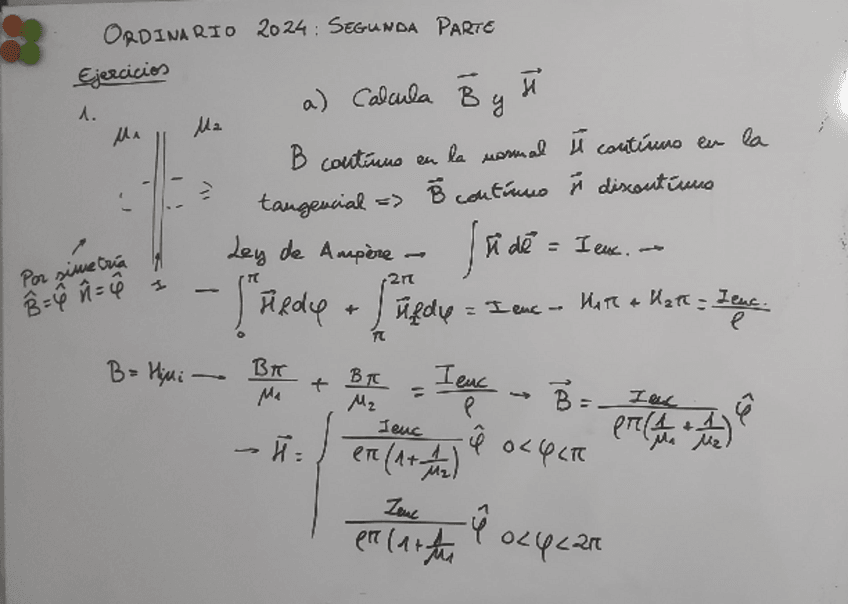 ORDINARIO 2024: SEGUNDA PARTE
Ejercicios
1.
a) Calcula B⃗ y H⃗
μ1 μ2
B contínuo en la normal H⃗ contínuo en la
tangencial => B⃗ contínuo H⃗ discontínuo
Por simetría
B̂=φ̂ Ĥ=φ̂
I
Ley de Ampère → ∫ H⃗ dl⃗ = Ienc. →
→ ∫₀^π H⃗ρdφ + ∫_π^2π H⃗ρdφ = Ienc → H1π + H2π = Ienc./ρ
B = Hiμi → Bπ/μ1 + Bπ/μ2 = Ienc/ρ → B⃗ = Ienc/(ρπ(1/μ1 + 1/μ2)) φ̂
→ H⃗ = { Ienc/(ρπ(1+1/μ2)) φ̂ 0<φ<π
Ienc/(ρπ(1+1/μ1 φ̂ 0<φ<2π